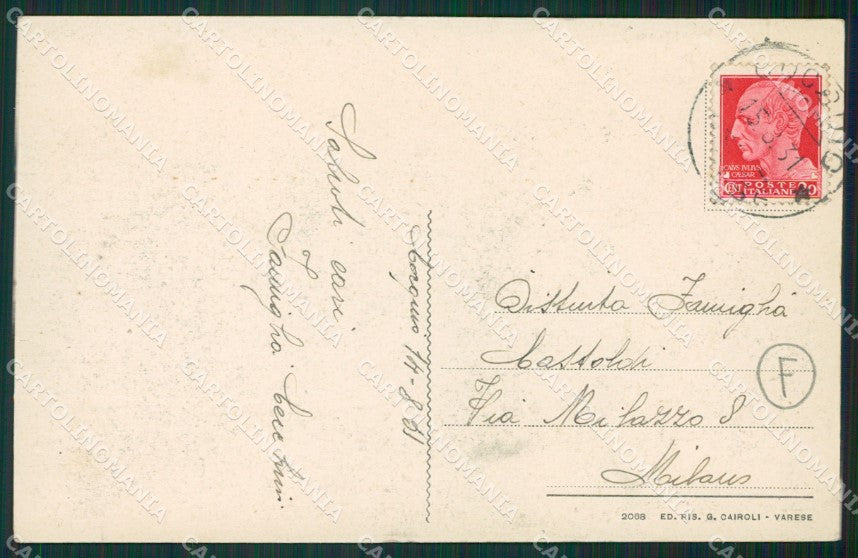 Saluti cari
Famiglia
14-8-31
Distinta Famiglia
Castoldi
Via Milazzo 8
Milano
CAIVS IVLIVS
CAESAR
CENT. POSTE 20
ITALIANE
15.8.31
F
2088 ED. RIS. G. CAIROLI - VARESE
CARTOLINOMANIA